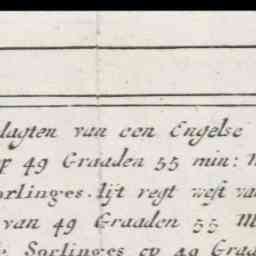 dagten van een Engelse
op 49 Graaden 55 min:
orlinges. lijt regt west va
van 49 Graaden 55 M
Sorlinges op 49 Graa